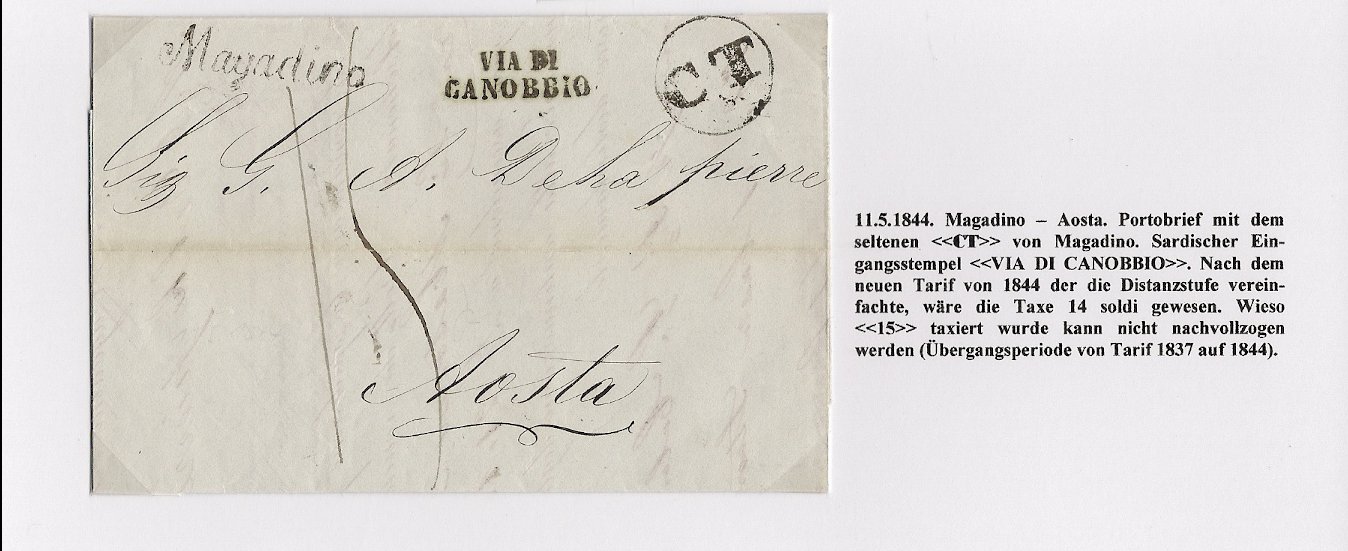 Magadino
VIA DI
CANOBBIO
CT
Sig G. A. Dehapierre
15
Aosta
11.5.1844. Magadino – Aosta. Portobrief mit dem
seltenen <<CT>> von Magadino. Sardischer Ein-
gangsstempel <<VIA DI CANOBBIO>>. Nach dem
neuen Tarif von 1844 der die Distanzstufe verein-
fachte, wäre die Taxe 14 soldi gewesen. Wieso
<<15>> taxiert wurde kann nicht nachvollzogen
werden (Übergangsperiode von Tarif 1837 auf 1844).